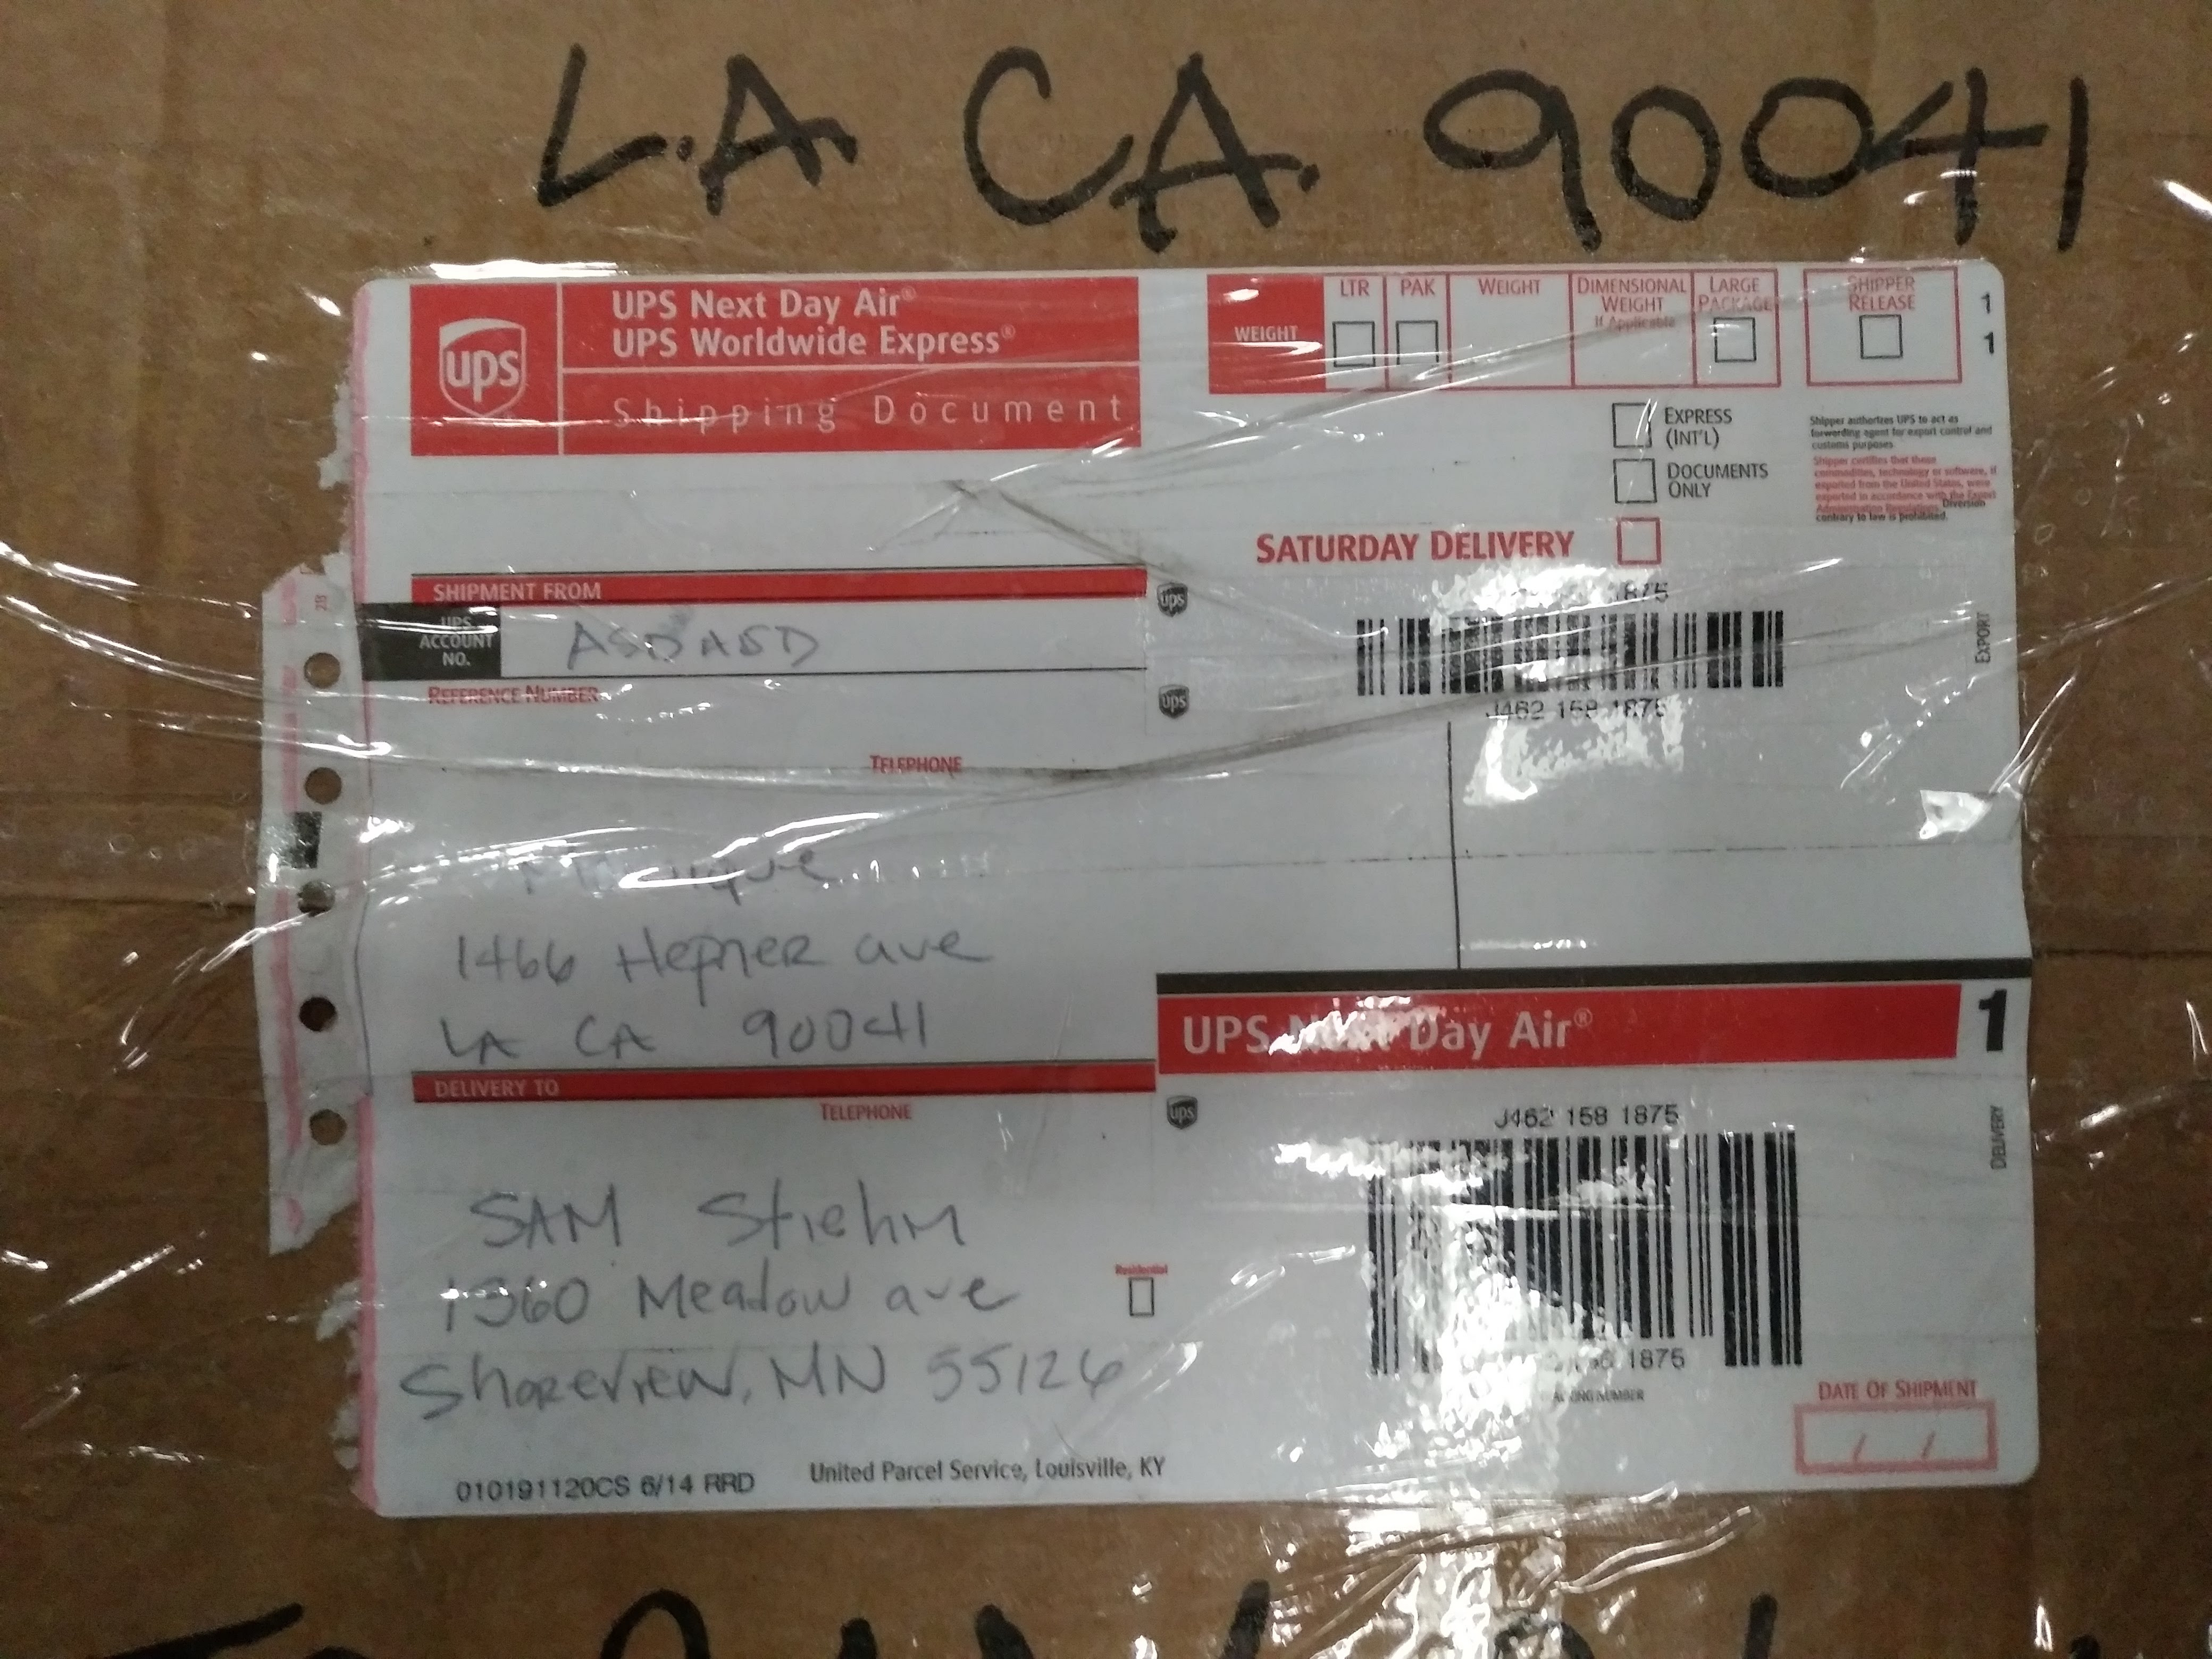 L.A CA. 90041
ups
UPS Next Day Air®
UPS Worldwide Express®
Shipping Document
WEIGHT
LTR
PAK
WEIGHT
DIMENSIONAL
WEIGHT
If Applicable
LARGE
PACKAGE
SHIPPER
RELEASE
1
1
EXPRESS
(INT'L)
DOCUMENTS
ONLY
Shipper authorizes UPS to act as
forwarding agent for export control and
customs purposes
Shipper certifies that these
commodities, technology or software, if
exported from the United States, were
exported in accordance with the Export
Administration Regulations. Diversion
contrary to law is prohibited.
SATURDAY DELIVERY
SHIPMENT FROM
UPS
ACCOUNT
NO.
ASDASD
REFERENCE NUMBER
ups
ups
1875
J462 158 1875
EXPORT
TELEPHONE
1466 Hepner ave
LA CA 90041
UPS Next Day Air®
1
DELIVERY TO
TELEPHONE
ups
J462 158 1875
DELIVERY
SAM Stiehm
1360 Meadow ave
Residential
Shoreview, MN 55126
1875
NUMBER
DATE OF SHIPMENT
/ /
010191120CS 6/14 RRD
United Parcel Service, Louisville, KY